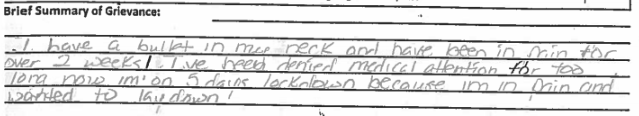 Brief Summary of Grievance:
I have a bullet in my neck and have been in pain for
over 2 weeks! I've been denied medical attention for too
long now im' on 5 days lockdown because im in pain and
wanted to lay down!